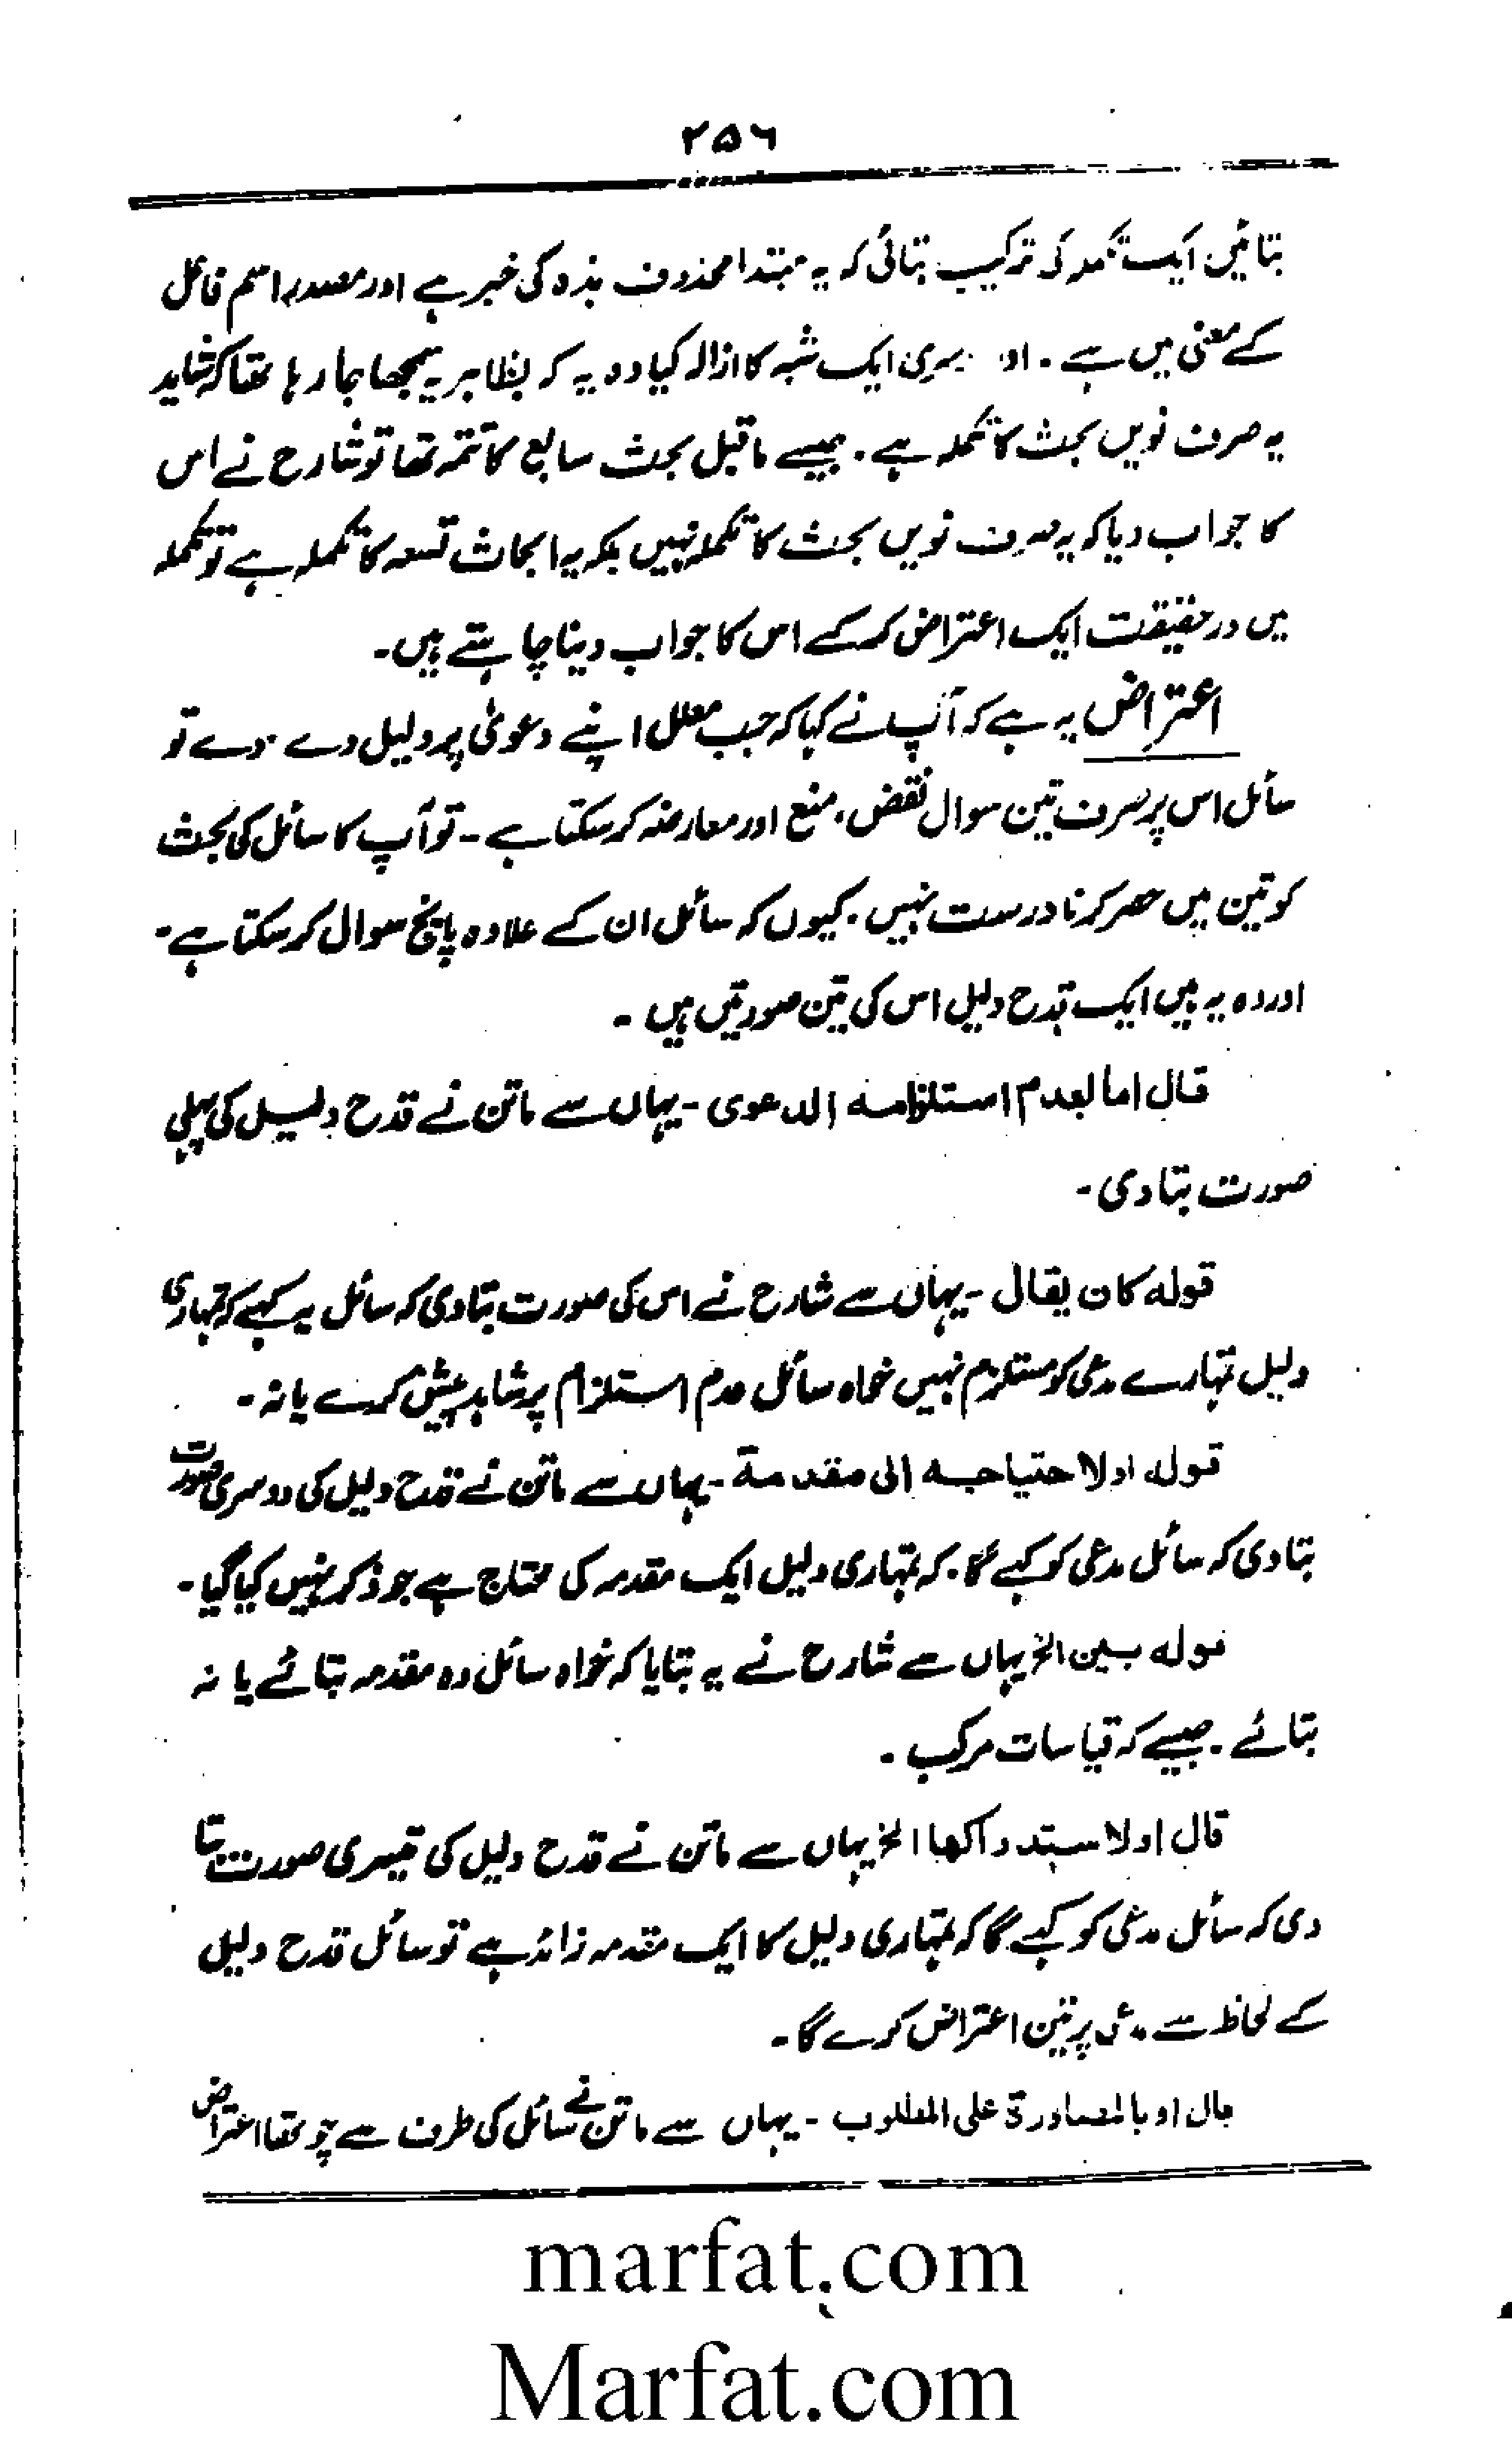 ۲۵۶
بتائیں ایک تکملہ کی ترکیب بتائی کہ یہ مبتدا محذوف ہذہ کی خبر ہے اور مصدر اسم فاعل
کے معنی میں ہے ۔ ایک شبہ کا ازالہ کیا وہ یہ کہ بظاہر یہ سمجھا جا رہا تھا کہ شاید
یہ صرف نویں بحث کا تکملہ ہے ۔ جیسے ماقبل بحث سابع کا تتمہ تھا تو شارح نے اس
کا جواب دیا کہ یہ صرف نویں بحث کا تکملہ نہیں بلکہ یہ ابحاث تسعہ کا تکملہ ہے تو تکملہ
میں درحقیقت ایک اعتراض کر کے اس کا جواب دینا چاہتے ہیں ۔
اعتراض یہ ہے کہ آپ نے کہا کہ جب معلل اپنے دعویٰ پر دلیل دے دے تو
سائل اس پر صرف تین سوال نقض ، منع اور معارضہ کر سکتا ہے ۔ تو آپ کا سائل کی بحث
کو تین میں حصر کرنا درست نہیں ۔ کیوں کہ سائل ان کے علاوہ پانچ سوال کر سکتا ہے ۔
اور وہ یہ ہیں ایک قدح دلیل اس کی تین صورتیں ہیں ۔
قال اما لعدم استلزامہ الدعوی ۔ یہاں سے ماتن نے قدح دلیل کی پہلی
صورت بتا دی ۔
قولہ کان یقال ۔ یہاں سے شارح نے اس کی صورت بتا دی کہ سائل یہ کہے کہ تمہاری
دلیل تمہارے مدعی کو مستلزم نہیں خواہ سائل عدم استلزام پر شاہد پیش کرے یا نہ ۔
قولہ اولا حتیاجہ الی مقدمة ۔ یہاں سے ماتن نے قدح دلیل کی دوسری صورت
بتا دی کہ سائل مدعی کو کہے گا ۔ کہ تمہاری دلیل ایک مقدمہ کی محتاج ہے جو ذکر نہیں کیا گیا ۔
قولہ بین الخ یہاں سے شارح نے یہ بتایا کہ خواہ سائل وہ مقدمہ بتائے یا نہ
بتائے ۔ جیسے کہ قیاسات مرکب ۔
قال اولا ستدراکھا الخ یہاں سے ماتن نے قدح دلیل کی تیسری صورت بتا
دی کہ سائل مدعی کو کہے گا کہ تمہاری دلیل کا ایک مقدمہ زائد ہے تو سائل قدح دلیل
کے لحاظ سے مدعی پر تین اعتراض کرے گا ۔
قال او بالمصادرة علی المطلوب ۔ یہاں سے ماتن نے سائل کی طرف سے چوتھا اعتراض
marfat.com
Marfat.com